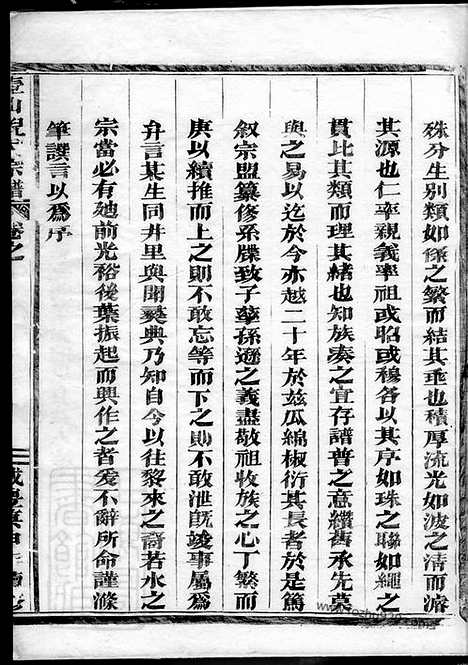 殊分生别類如條之繁而結其乖也積厚流光如波之清而濬
其源也仁率親義率祖或昭或穆各以其序如珠之聯如繩之
貫此其類而理其緒也知族奏之宜存譜普之意纘舊承先慕
與之易以迄於今亦越二十年於茲瓜綿椒衍其長者於是篤
叙宗盟纂修系牒致子孳孫遜之義盡敬祖收族之心丁繁而
庚以續推而上之則不敢忘等而下之則不敢泄旣竣事屬爲
弁言某生同井里與聞彞典乃知自今以往黎來之裔若水之
宗當必有光前裕後葉振起而興作之者爰不辭所命謹滌
筆譔言以爲序
山倪氏宗譜 卷之一
咸豐庚申年